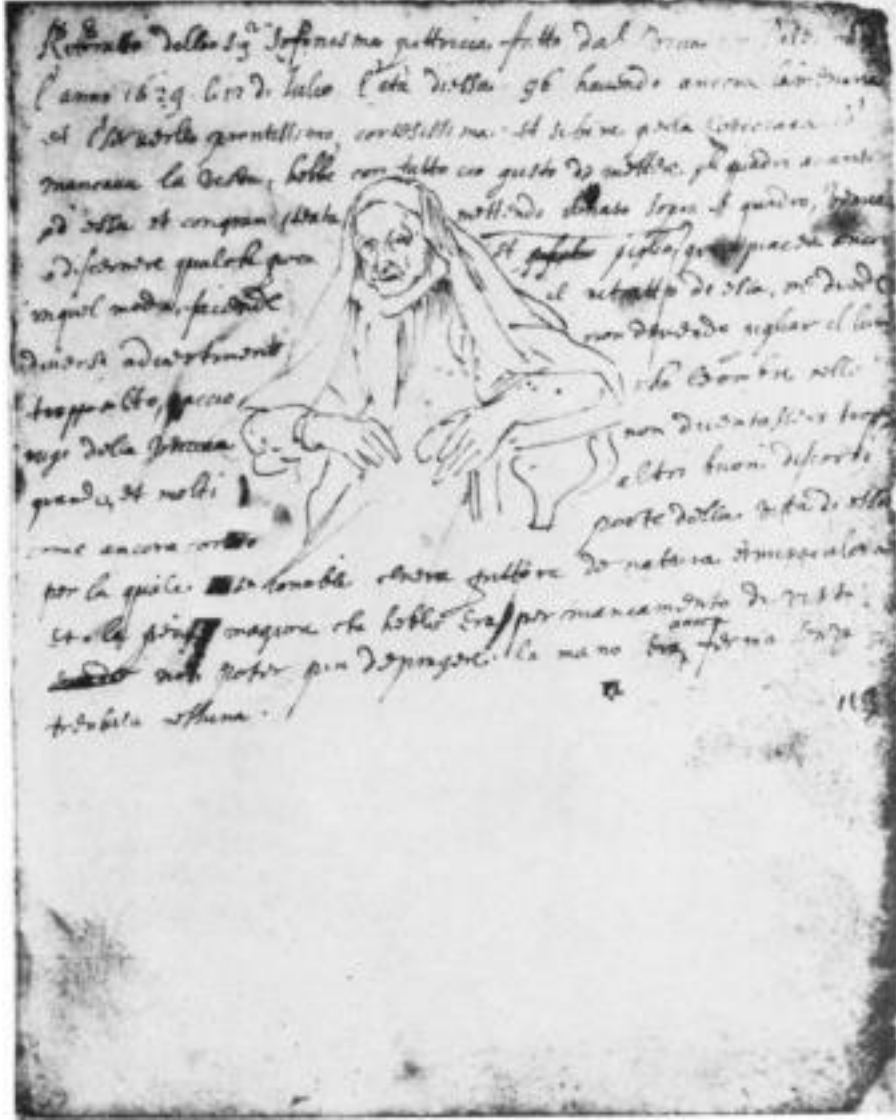 Rittratto della Sigra Sofonisma pittricia fatto dal vivo in
l'anno 1629 li 12 di Julio l'età di essa 96 havendo ancora la memoria
et il cervello prontissimo, cortesissima et sebene per la
mancava la vista, hebbe con tutto cio gusto de mettere gli quadri avanti
ad essa et con gran stenta mettendo il naso sopra il quadro,
a discernere qualche poca et piglio gran piacere ancora
in quel modo, facendo il ritratto de essa, me diede
diversi advertimenti non devendo pigliar il lume
troppo alto, accio che le ombre nelle
rughe della vecciaia non diventassero troppo
grande, et molti altri buoni discorsi
come ancora parte della vita di essa
per la quale era pittora de natura et miraculosa
et la pena magiore che hebbe era per mancamento di vista
non poter piu depingere. la mano era ancora ferma senza
tremula nessuna.